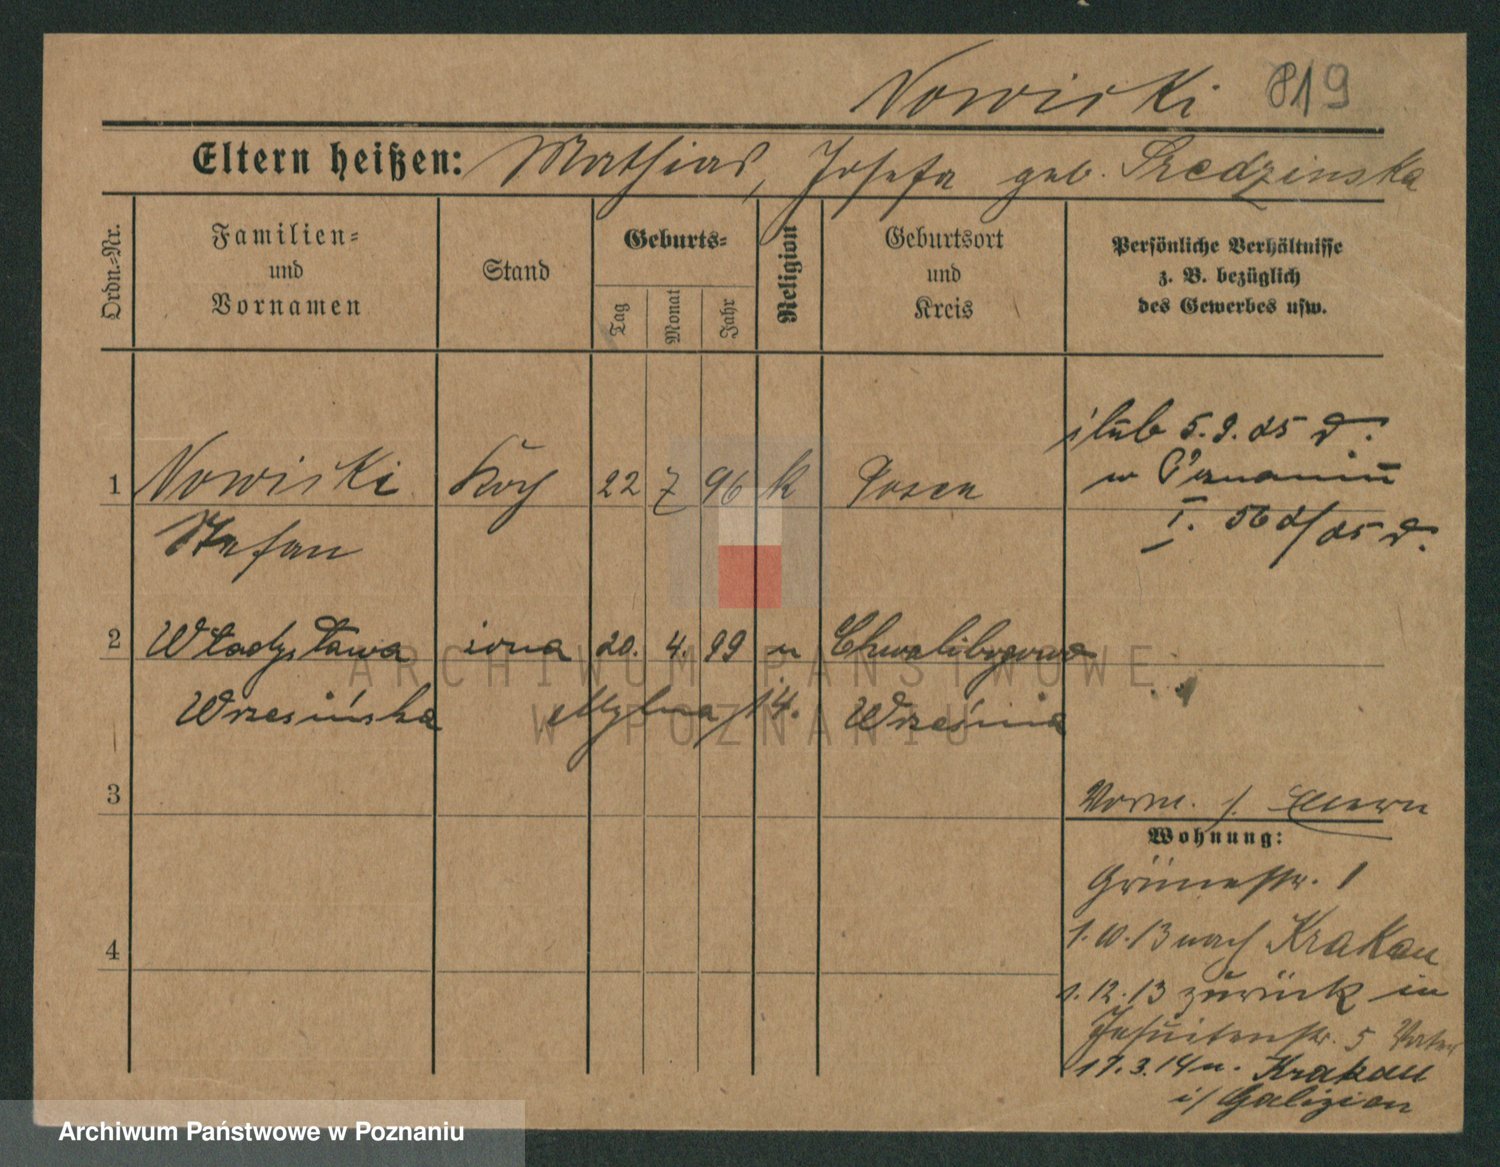 Nowicki 819
Eltern heißen: Mathias, Josefa geb. Szedzinska
Ordn.-Nr.
Familien-
und
Vornamen
Stand
Geburts-
Tag
Monat
Jahr
Religion
Geburtsort
und
Kreis
Persönliche Verhältnisse
z. B. bezüglich
des Gewerbes usw.
ślub 5.9.25 r.
1 Nowicki Koch 22 7 96 k Posen
w Poznaniu
Stefan
I. 562/25 r.
2 Władysława żona 20. 4. 99 Chwalibogowo
Wrzesińska Mylna 14. Września
3
Vorm. s. Eltern
Wohnung:
Grünestr. 1
1.10.13 nach Krakau
4
1.12.13 zurück in
Jesuitenstr. 5 Vater
17.3.14 n. Krakau
i/ Galizien
ARCHIWUM PAŃSTWOWE
W POZNANIU
Archiwum Państwowe w Poznaniu